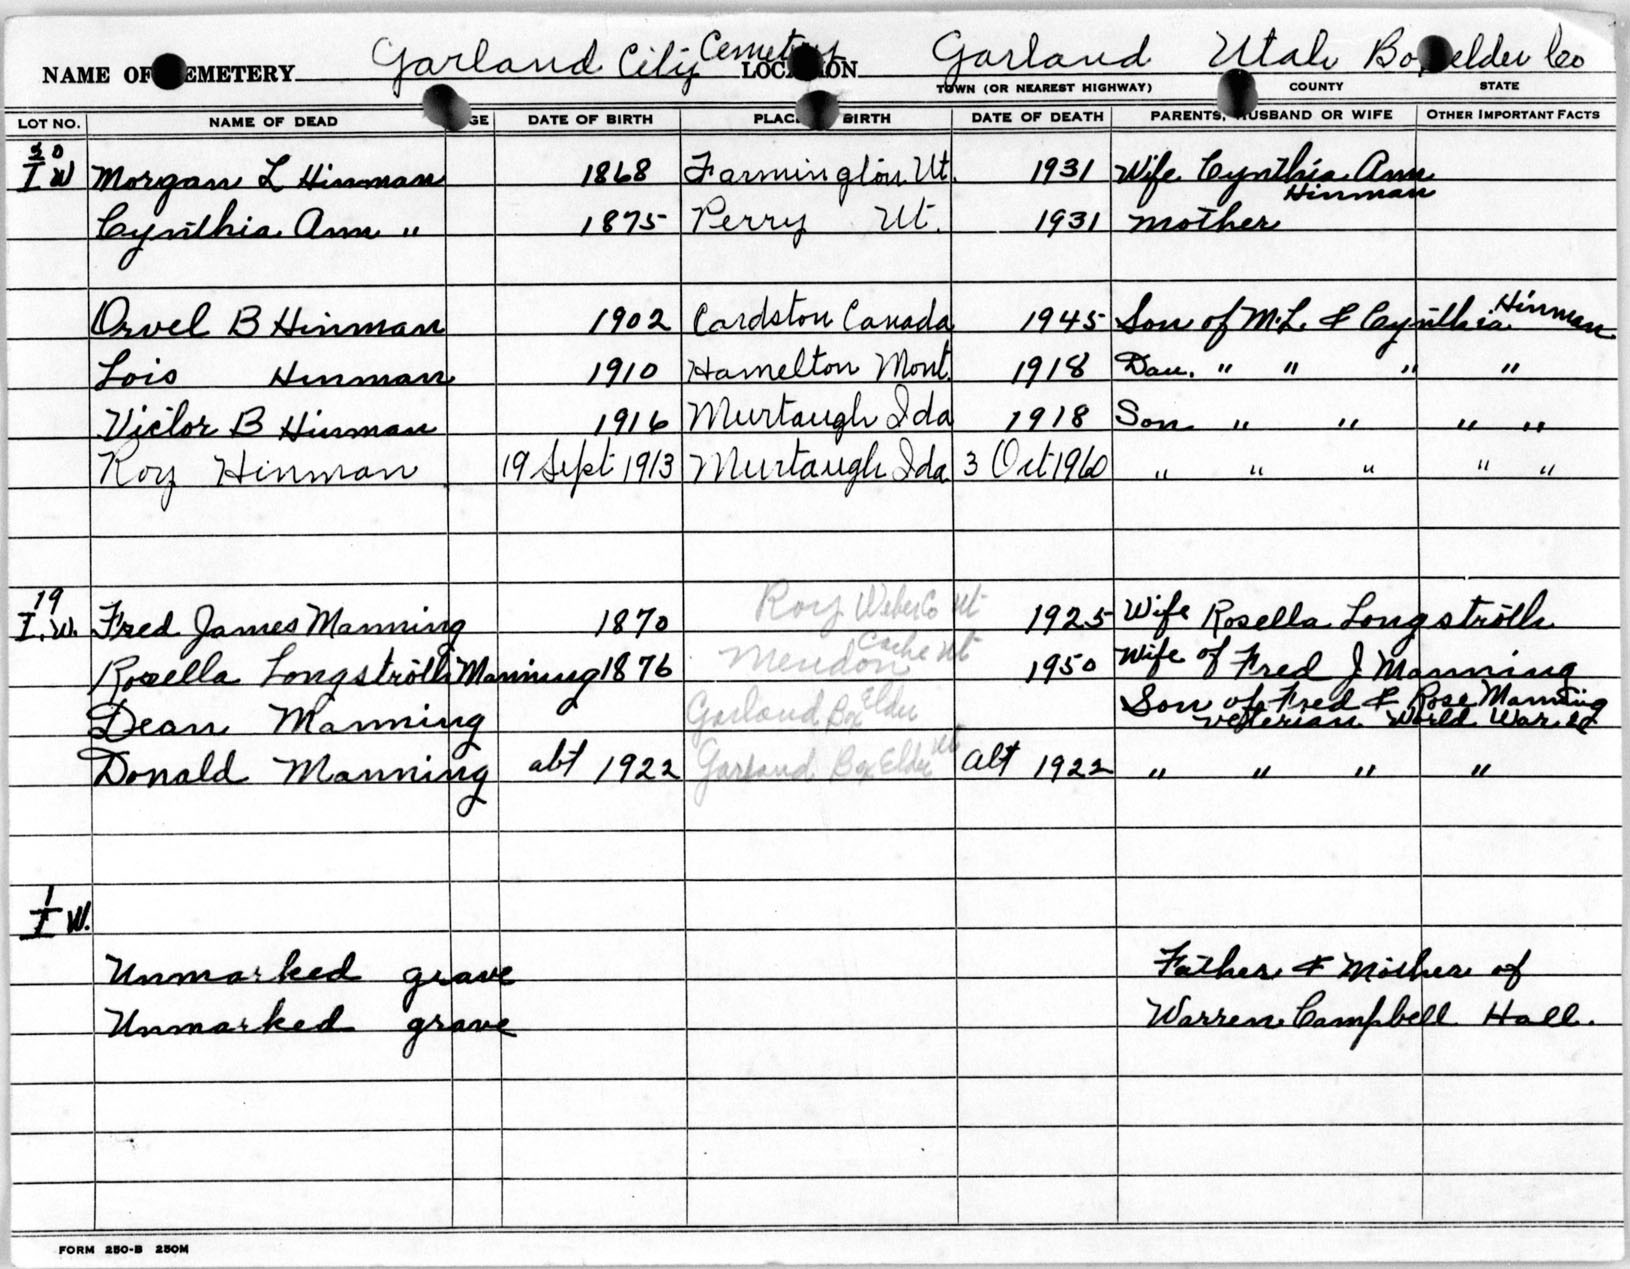 NAME OF CEMETERY Garland City Cemetery LOCATION Garland Utah Box elder Co
TOWN (OR NEAREST HIGHWAY) COUNTY STATE
LOT NO. NAME OF DEAD AGE DATE OF BIRTH PLACE OF BIRTH DATE OF DEATH PARENTS, HUSBAND OR WIFE OTHER IMPORTANT FACTS
30
I W Morgan L Hinman 1868 Farmington Ut. 1931 Wife Cynthia Ann
Hinman
Cynthia Ann " 1875 Perry Ut. 1931 Mother
Orvel B Hinman 1902 Cardston Canada 1945 Son of M.L. & Cynthia Hinman
Lois Hinman 1910 Hamelton Mont. 1918 Dau. " " " "
Victor B Hinman 1916 Murtaugh Ida 1918 Son " " " "
Roy Hinman 19 Sept 1913 Murtaugh Ida 3 Oct 1960 " " " " "
19
I. W. Fred James Manning 1870 Roy Weber Co Ut 1925 Wife Rosella Longstroth
Rosella Longstroth Manning 1876 Mendon Cache Ut 1950 Wife of Fred J Manning
Dean Manning Garland Box Elder Son of Fred & Rose Manning
veterian World War
Donald Manning abt 1922 Garland Box Elder Ut abt 1922 " " " "
1
I W.
Unmarked grave Father & Mother of
Unmarked grave Warren Campbell Hall.
FORM 250-B 250M